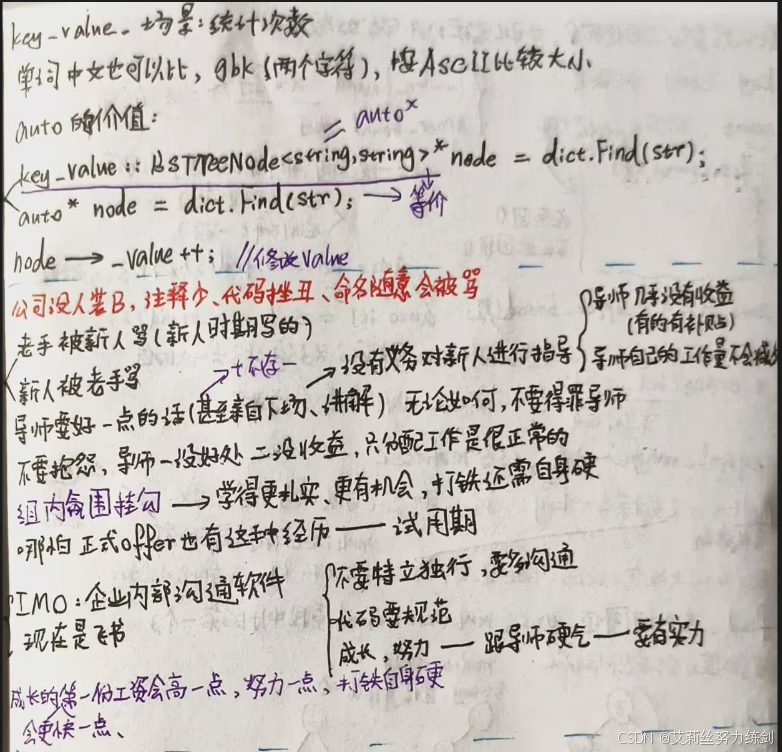 key_value_场景:统计次数
单词中文也可以比,gbk(两个字符),按ASCII比较大小
auto的价值:
= auto*
key_value::BSTreeNode<string,string>* node = dict.Find(str);
auto* node = dict.Find(str); → 等价
node → _value++; //修改value
公司没人装B,注释少、代码挫丑、命名随意会被骂
老手被新人骂(新人时期写的)
新人被老手骂
没有义务对新人进行指导
导师几乎没有收益
(有的有补贴)
导师自己的工作量不会减少
导师要好一点的话(甚至亲自下场、讲解) 无论如何,不要得罪导师
不要抱怨,导师一没好处 二没收益,只分配工作是很正常的
组内氛围挂勾 → 学得更扎实,更有机会,打铁还需自身硬
哪怕 正式offer也有这种经历 — 试用期
IMO:企业内部沟通软件
现在是飞书
不要特立独行,要多沟通
代码要规范
成长,努力 — 跟导师硬气 — 要有实力
成长的第一份工资会高一点,努力一点,打铁自身硬
会更快一点、
CSDN @艾莉丝努力练剑